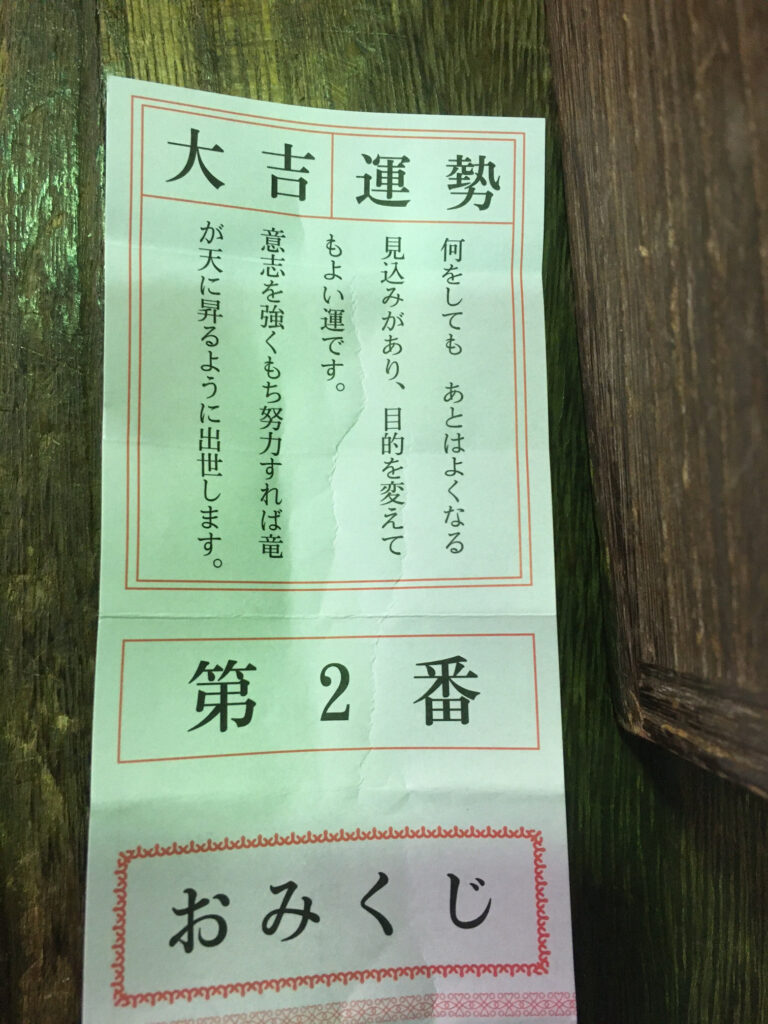 大吉 運勢
何をしても　あとはよくなる
見込みがあり、目的を変えて
もよい運です。
意志を強くもち努力すれば竜
が天に昇るように出世します。
第2番
おみくじ